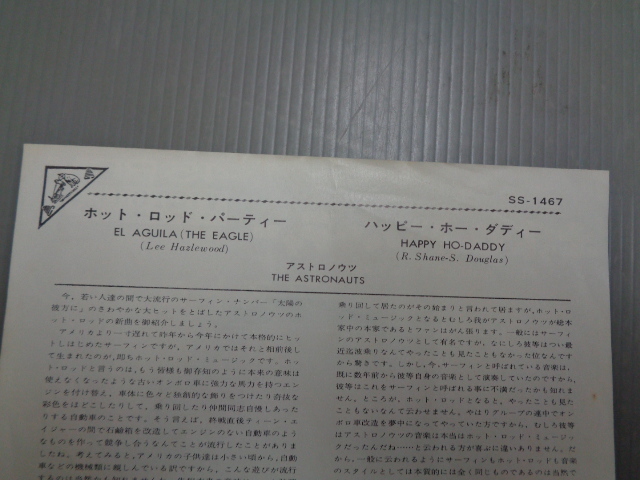 SS-1467
ホット・ロッド・パーティー
EL AGUILA (THE EAGLE)
(Lee Hazlewood)
ハッピー・ホー・ダディー
HAPPY HO-DADDY
(R. Shane-S. Douglas)
アストロノウツ
THE ASTRONAUTS
今、若い人達の間で大流行のサーフィン・ナンバー「太陽の
彼方に」のさわやかな大ヒットをとばしたアストロノウツのホ
ット・ロッドの新曲を御紹介しましょう。
アメリカより一寸遅れて昨年から今年にかけて本格的にヒッ
トしはじめたサーフィンですが、アメリカではそれと相前後し
て生まれたのが、即ちホット・ロッド・ミュージックです。ホッ
ト・ロッドと言うのは、もう皆様も御存知のように本来の意味は
使えなくなったような古いオンボロ車に強力な馬力を持つエンジ
ンを付け替え、車体に色々と独創的な飾りをつけたり奇抜な
彩色をほどこしたりして、乗り回したり仲間同志自慢しあった
りする自動車のことです。そう言えば、終戦直後ティーン・エ
イジャーの間で石鹸箱を改造してエンジンのない自動車のよう
なものを作って競争し合うなんてことが流行したことがありま
したね。考えてみると、アメリカの子供達は小さい頃から、自動
車などの機械類に親しんでいる訳ですから、こんな遊びが流行
乗り回して居たのがその始まりと言われて居ますが、ホット・ロ
ッド・ミュージックとなるとむしろ我がアストロノウツが総本
家中の本家であるとファンはがん張ります。一般にはサーフィ
ンのアストロノウツとして有名ですが、なにしろ彼等はつい最
近迄波乗りなんてやったことも見たこともなかった位なんです
から驚きです。しかし、今、サーフィンと呼ばれている音楽は、
既に数年前から彼等自身の音楽として演奏していたのですから、
彼等はこれをサーフィンと呼ばれる事に不満だったかも知れま
せん。ところが、ホット・ロッドとなると、やったことも見た
こともないなんて云わせません。やはりグループの連中でオン
ボロ車改造を夢中になってやっていた方ですから、むしろ彼等
はアストロノウツの音楽は本当はホット・ロッド・ミュージッ
クだったんだね……と云われる方が喜ぶに違いありません。だ
から、一般に云われるようにサーフィンもホット・ロッドも音楽
のスタイルとしては本質的には全く同じものであるのは当然で